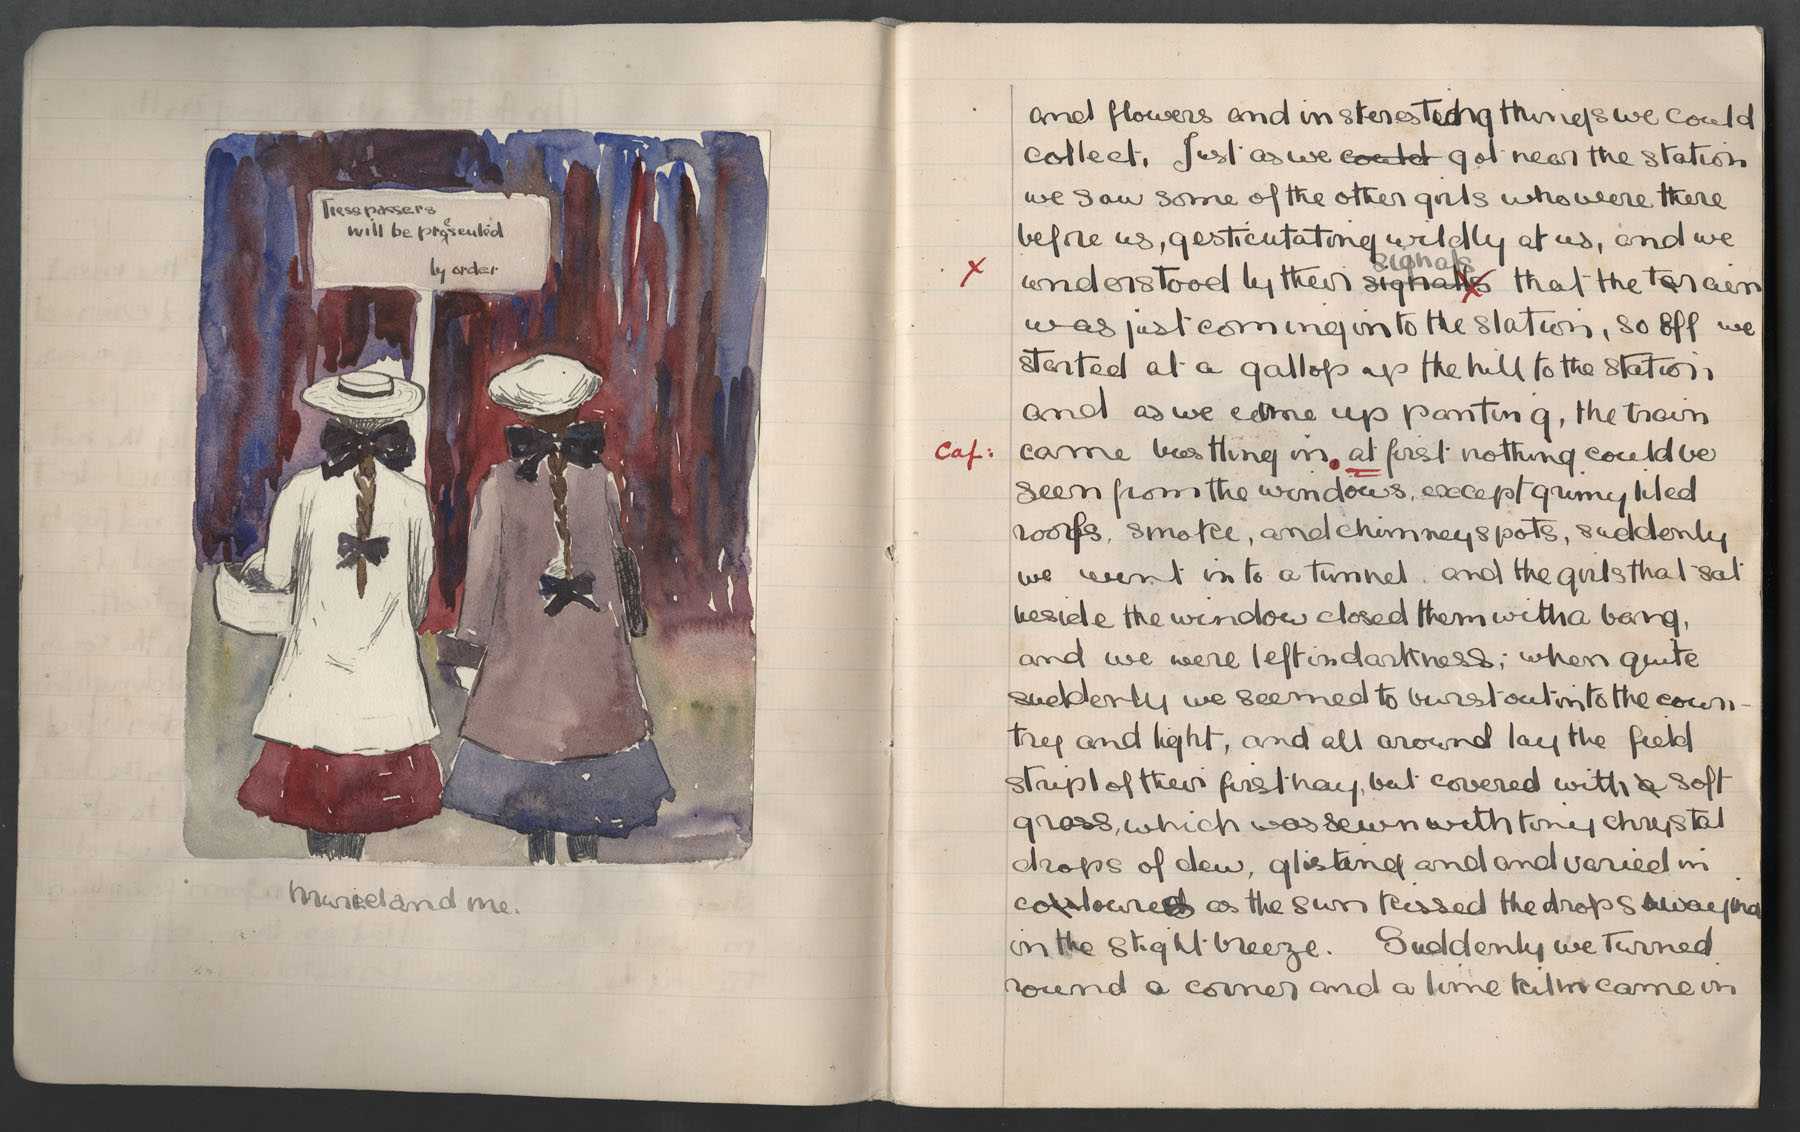 Tresspassers
will be prosecuted
by order
Muriel and me.
and flowers and interesting things we could
collect. Just as we could got near the station
we saw some of the other girls who were there
before us, gesticutating wildly at us, and we
signals
x understood by their signalls that the train
was just coming into the station, so off we
started at a gallop up the hill to the station
and as we come up panting, the train
Cap: came bustling in. at first nothing could be
seen from the windows, except grimy tiled
roofs, smoke, and chimneyspots, suddenly
we went into a tunnel, and the girls that sat
beside the window closed them with a bang,
and we were left in darkness; when quite
suddenly we seemed to burst out into the coun-
try and light, and all around lay the field
stript of their first hay, but covered with a soft
grass, which was sewn with tiny chrystal
drops of dew, glisting and and varied in
coloured as the sun kissed the drops swaying
in the slight breeze. Suddenly we turned
round a corner and a lime kiln came in